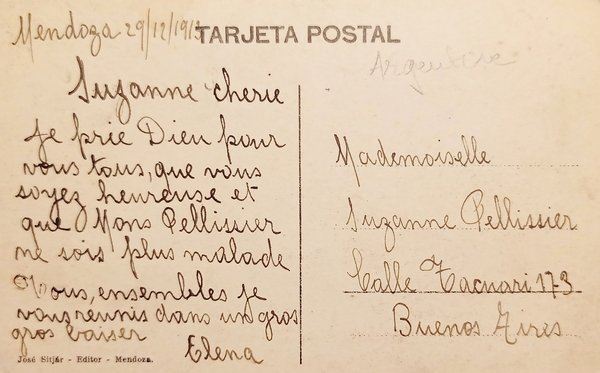 Mendoza 29/12/191
TARJETA POSTAL
Argentine
Suzanne cherie
Je prie Dieu pour
vous tous, que vous
soyez heureuse et
que Mons Pellissier
ne sois plus malade
Vous, ensembles je
vous reunis dans un gros
gros baiser
Elena
José Sitjár - Editor - Mendoza.
Mademoiselle
Suzanne Pellissier
Calle Tacuari 173
Buenos Aires